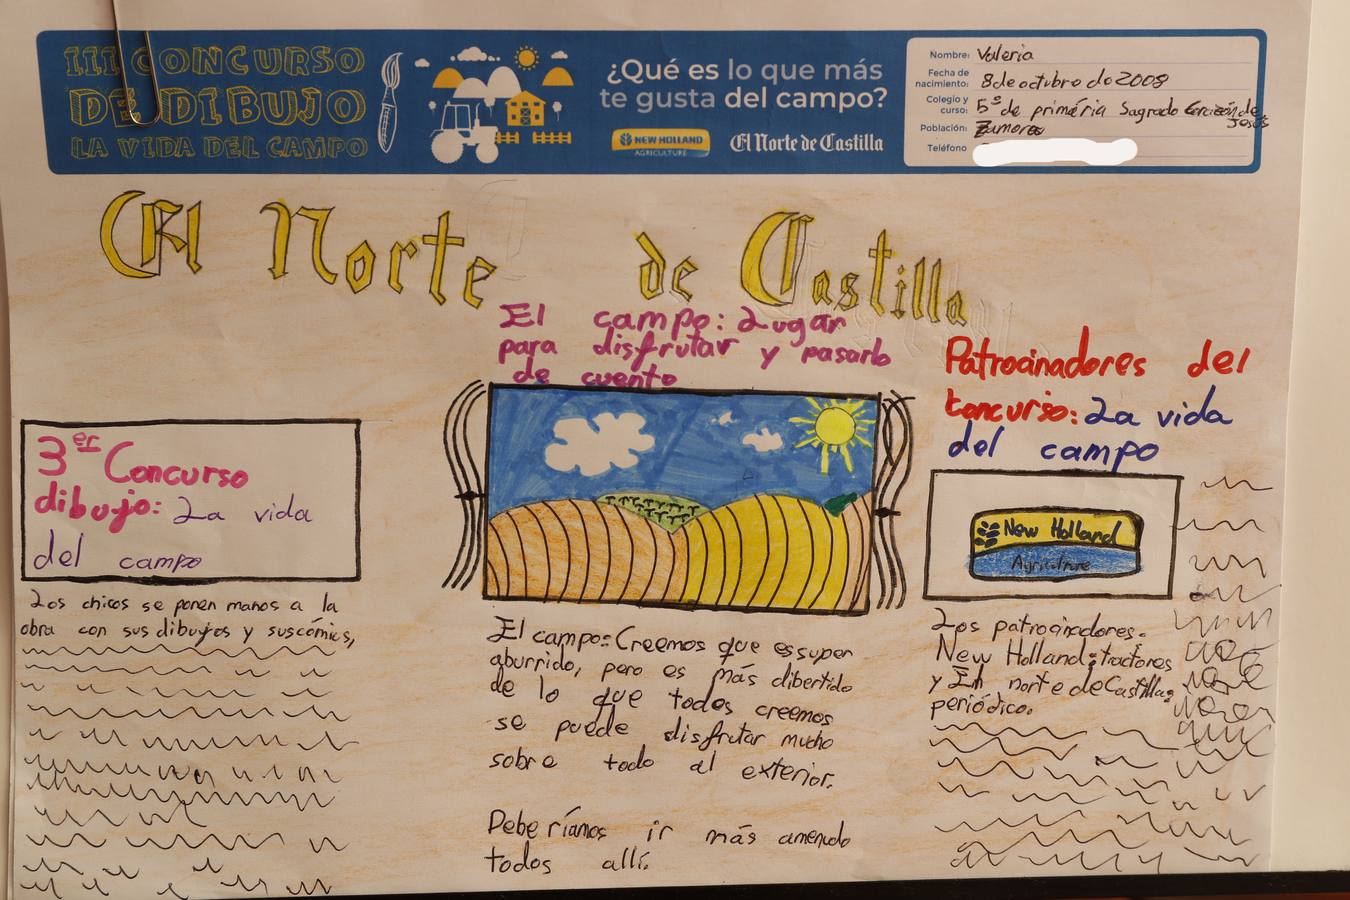 III CONCURSO
DE DIBUJO
LA VIDA DEL CAMPO
¿Qué es lo que más
te gusta del campo?
NEW HOLLAND
AGRICULTURE
El Norte de Castilla
Nombre: Valeria
Fecha de
nacimiento: 8 de octubro do 2008
Colegio y
curso: 5º de primária Sagrado Corazón de
Jesús
Población: Zamora
Teléfono
El Norte de Castilla
El campo: Lugar
para disfrutar y pasarlo
de cuento
3er Concurso
dibujo: La vida
del campo
Los chicos se ponen manos a la
obra con sus dibujos y sus cómics,
El campo: Creemos que es super
aburrido, pero es más dibertido
de lo que todos creemos
se puede disfrutar mucho
sobre todo al exterior.
Deberíamos ir más amenudo
todos allí.
Patrocinadores del
Concurso: La vida
del campo
New Holland
Agriculture
Los patrocinadores.
New Holland: tractores
y El norte de Castilla
periódico.